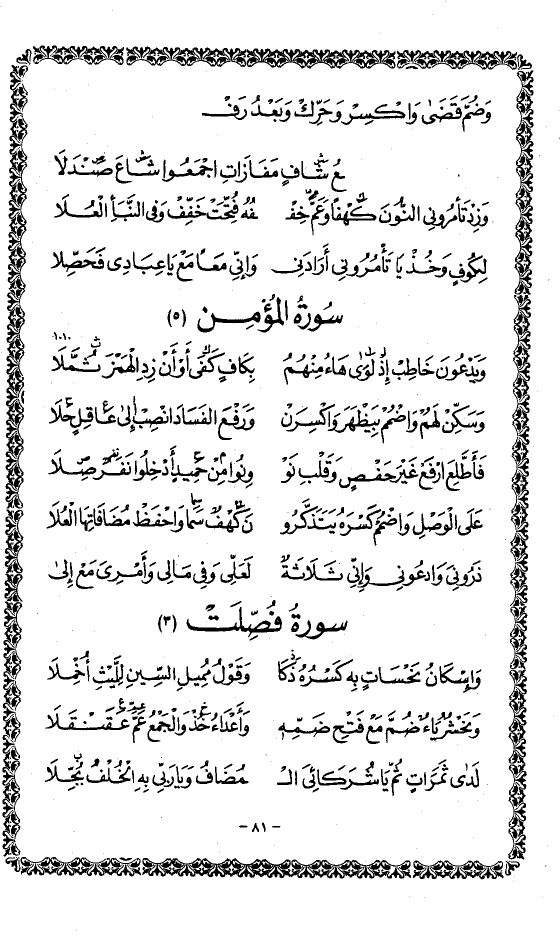 وَضُمَّ قَضَى وَاكْسِرْ وَحَرِّكْ وَبَعْدُ رَفْـ
ـعُ شَافٍ مَفَازَاتِ اجْمَعُوا شَاعَ صَنْدَلَا
وَزِدْ تَأْمُرُونِي النُّونَ كَهْفًا وَعَمَّ خِفْـ ـفُهُ فُتِّحَتْ خَفِّفْ وَفِي النَّبَأِ الْعُلَا
لِكُوفٍ وَخُذْ يَا تَأْمُرُونِي أَرَادَنِي وَإِنِّي مَعًا مَعْ يَاعِبَادِي فَحَصِّلَا
سُورَةُ الْمُؤْمِن (٥)
١٠١٠
وَيَدْعُونَ خَاطِبْ إِذْ لَوَى هَاءُ مِنْهُمُ بِكَافٍ كَفَى أَوْ أَنْ زِدِ الْهَمْزَ ثُمَّلَا
وَسَكِّنْ لَهُمْ وَاضْمُمْ بِيَظْهَرَ وَاكْسِرَنْ وَرَفْعَ الْفَسَادَ انْصِبْ إِلَى عَاقِلٍ حَلَا
فَأَطَّلِعَ ارْفَعْ غَيْرَ حَفْصٍ وَقَلْبِ نَوْ وِنُوا مِنْ حَمِيدٍ أَدْخِلُوا نَفَرٌ صِلَا
عَلَى الْوَصْلِ وَاضْمُمْ كَسْرَهُ يَتَذَكَّرُو نَ كَهْفٌ سَمَا وَاحْفَظْ مُضَافَاتِهَا الْعُلَا
ذَرُونِيَ وَادْعُونِي وَإِنِّي ثَلَاثَةٌ لَعَلِّي وَفِي مَالِي وَأَمْرِيَ مَعْ إِلَى
سُورَةُ فُصِّلَتْ (٣)
وَإِسْكَانُ نَحْسَاتٍ بِهِ كَسْرُهُ ذَكَا وَقَوْلُ مُمِيلِ السِّينِ لِلَّيْثِ أُخْمِلَا
وَنَحْشُرُ يَاءٌ ضُمَّ مَعْ فَتْحِ ضَمِّهِ وَأَعْدَاءُ خُذْ وَالْجَمْعُ عَمَّ عَقَنْقَلَا
لَدَى ثَمَرَاتٍ ثُمَّ يَا شُرَكَائِيَ الْـ ـمُضَافُ وَيَا رَبِّي بِهِ الْخُلْفُ بُجِّلَا
- ٨١ -